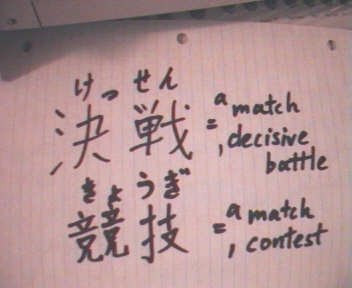 けっせん
決戦 = a match
, decisive
battle
きょうぎ
競技 = a match
, contest